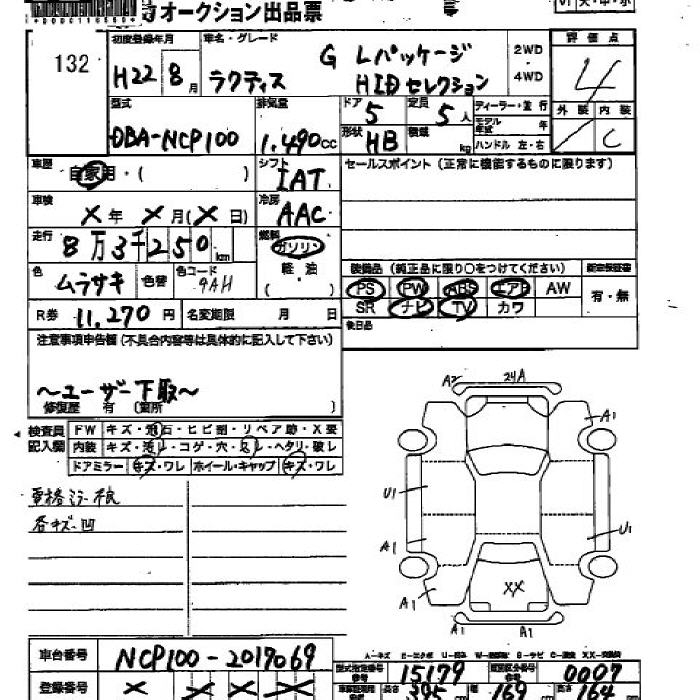 オークション出品票
132
初度登録年月
H22 8月
車名・グレード
ラクティス
G Lパッケージ
HIDセレクション
2WD
4WD
評価点
4
型式
DBA-NCP100
排気量
1.490cc
ドア
5
定員
5人
形状
HB
積載
kg
ディーラー・並行
モデル年式
年
ハンドル 左・右
外装
内装
C
車歴
自家用・( )
シフト
IAT
セールスポイント(正常に機能するものに限ります)
車検
X年 X月(X日)
冷房
AAC
走行
8万3千250km
燃料
ガソリン
軽油
( )
色
ムラサキ
色替
色コード
9AH
装備品(純正品に限り○をつけてください)
PS PW ABS エアB AW
SR ナビ TV カワ
新車保証書
有・無
R券
11,270円
名変期限 月 日
後日品
注意事項申告欄(不具合内容等は具体的に記入して下さい)
~ユーザー下取~
修復歴 有 (箇所 )
検査員
記入欄
FW キズ・飛石・ヒビ割・リペア跡・X要
内装 キズ・汚レ・コゲ・穴・ハレ・ヘタリ・破レ
ドアミラー キズ・ワレ ホイール・キャップ キズ・ワレ
各キズ凹
A2
24A
A1
U1
A1
U1
XX
A1
A1
A1
車台番号
NCP100-2017069
型式指定番号
15179
類別区分番号
0007
登録番号
X X X X
長さ
395
cm
幅
169
cm
高さ
164
cm